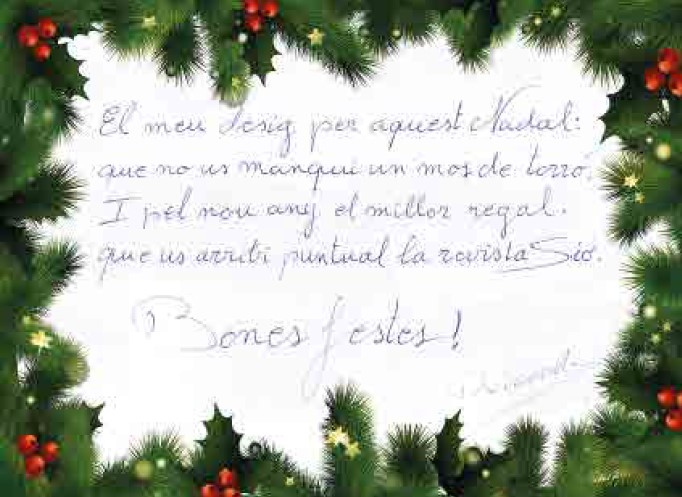 El meu desig per aquest Nadal:
que no us manqui un mos de torró.
I pel nou any el millor regal.
que us arribi puntual la revista Sió.
Bones festes!